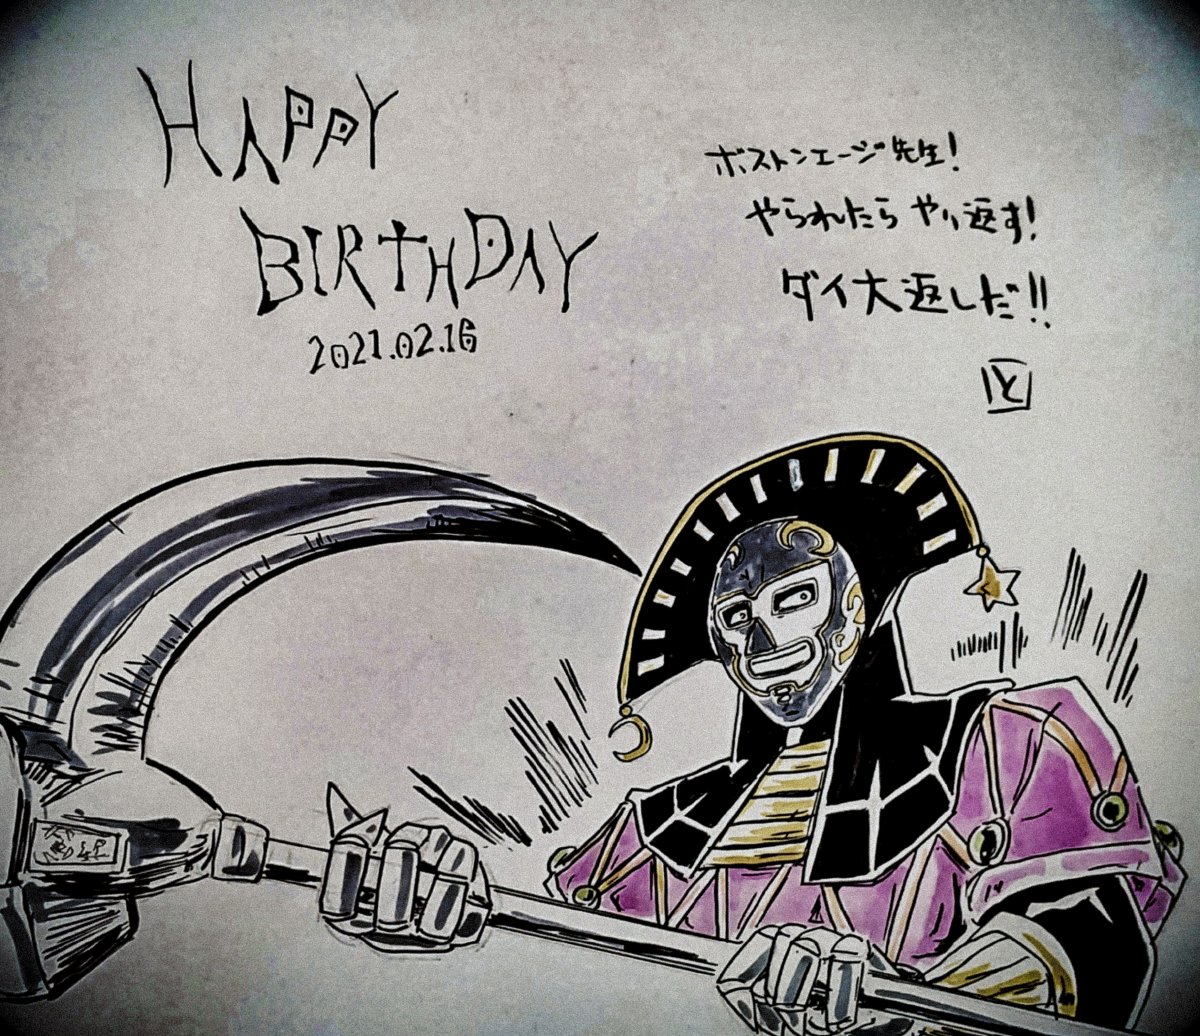 HAPPY
BIRTHDAY
2021.02.16
ボストンエージ先生!
やられたら やり返す!
ダイ大返しだ!!
と